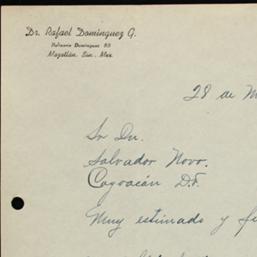 Dr. Rafael Domínguez G.
Belisario Domínguez 85
Mazatlán, Sin., Mex.
28 de M
Sr Dn.
Salvador Novo.
Coyoacán D.F.
Muy estimado y